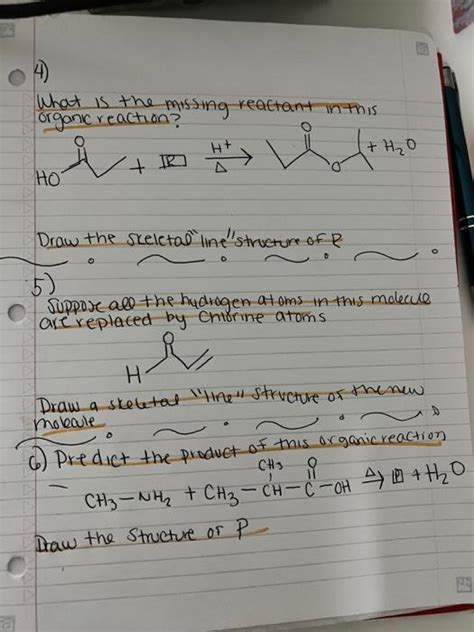 4)
What is the missing reactant in this
organic reaction?
O
HO + R H+ Δ → O O + H2O
Draw the skeletal "line" structure of R
5)
Suppose all the hydrogen atoms in this molecule
are replaced by chlorine atoms
O
H
Draw a skeletal "line" structure of the new
molecule
6) Predict the product of this organic reaction
CH3 O
CH3-NH2 + CH3-CH-C-OH Δ → P + H2O
Draw the structure of P